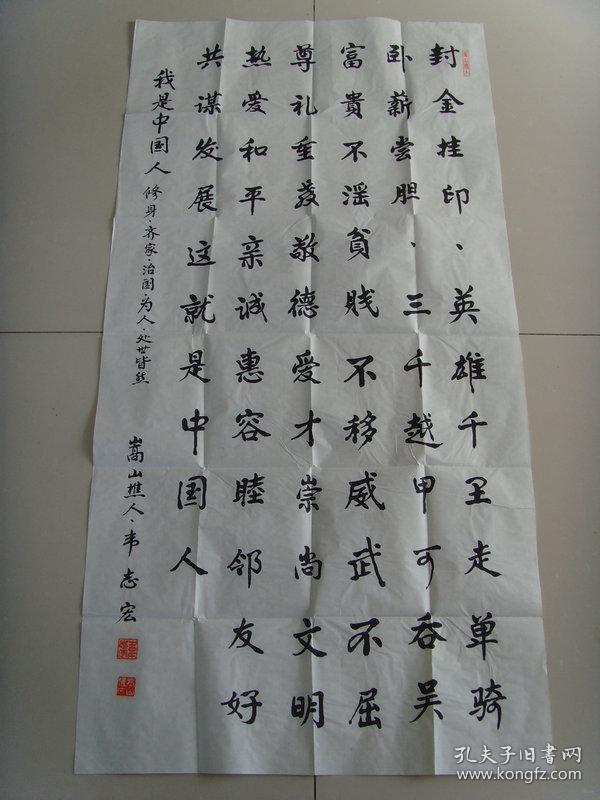 封金挂印、英雄千里走单骑
卧薪尝胆、三千越甲可吞吴
富貴不滛貧贱不移威武不屈
尊礼重教敬德爱才崇尚文明
热爱和平亲诚惠容睦邻友好
共谋发展这就是中国人
我是中国人 修身·齐家·治国·为人·处世皆然
嵩山樵人·韦志宏
孔夫子旧书网
www.kongfz.com